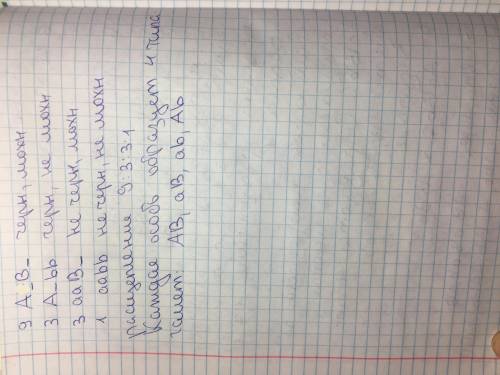 9 A_B_ черн, мохн
3 A_bb черн, не мохн
3 aaB_ не черн, мохн
1 aabb не черн, не мохн
Расщепление 9:3:3:1
Каждая особь образует 4 типа
гамет: AB, aB, ab, Ab